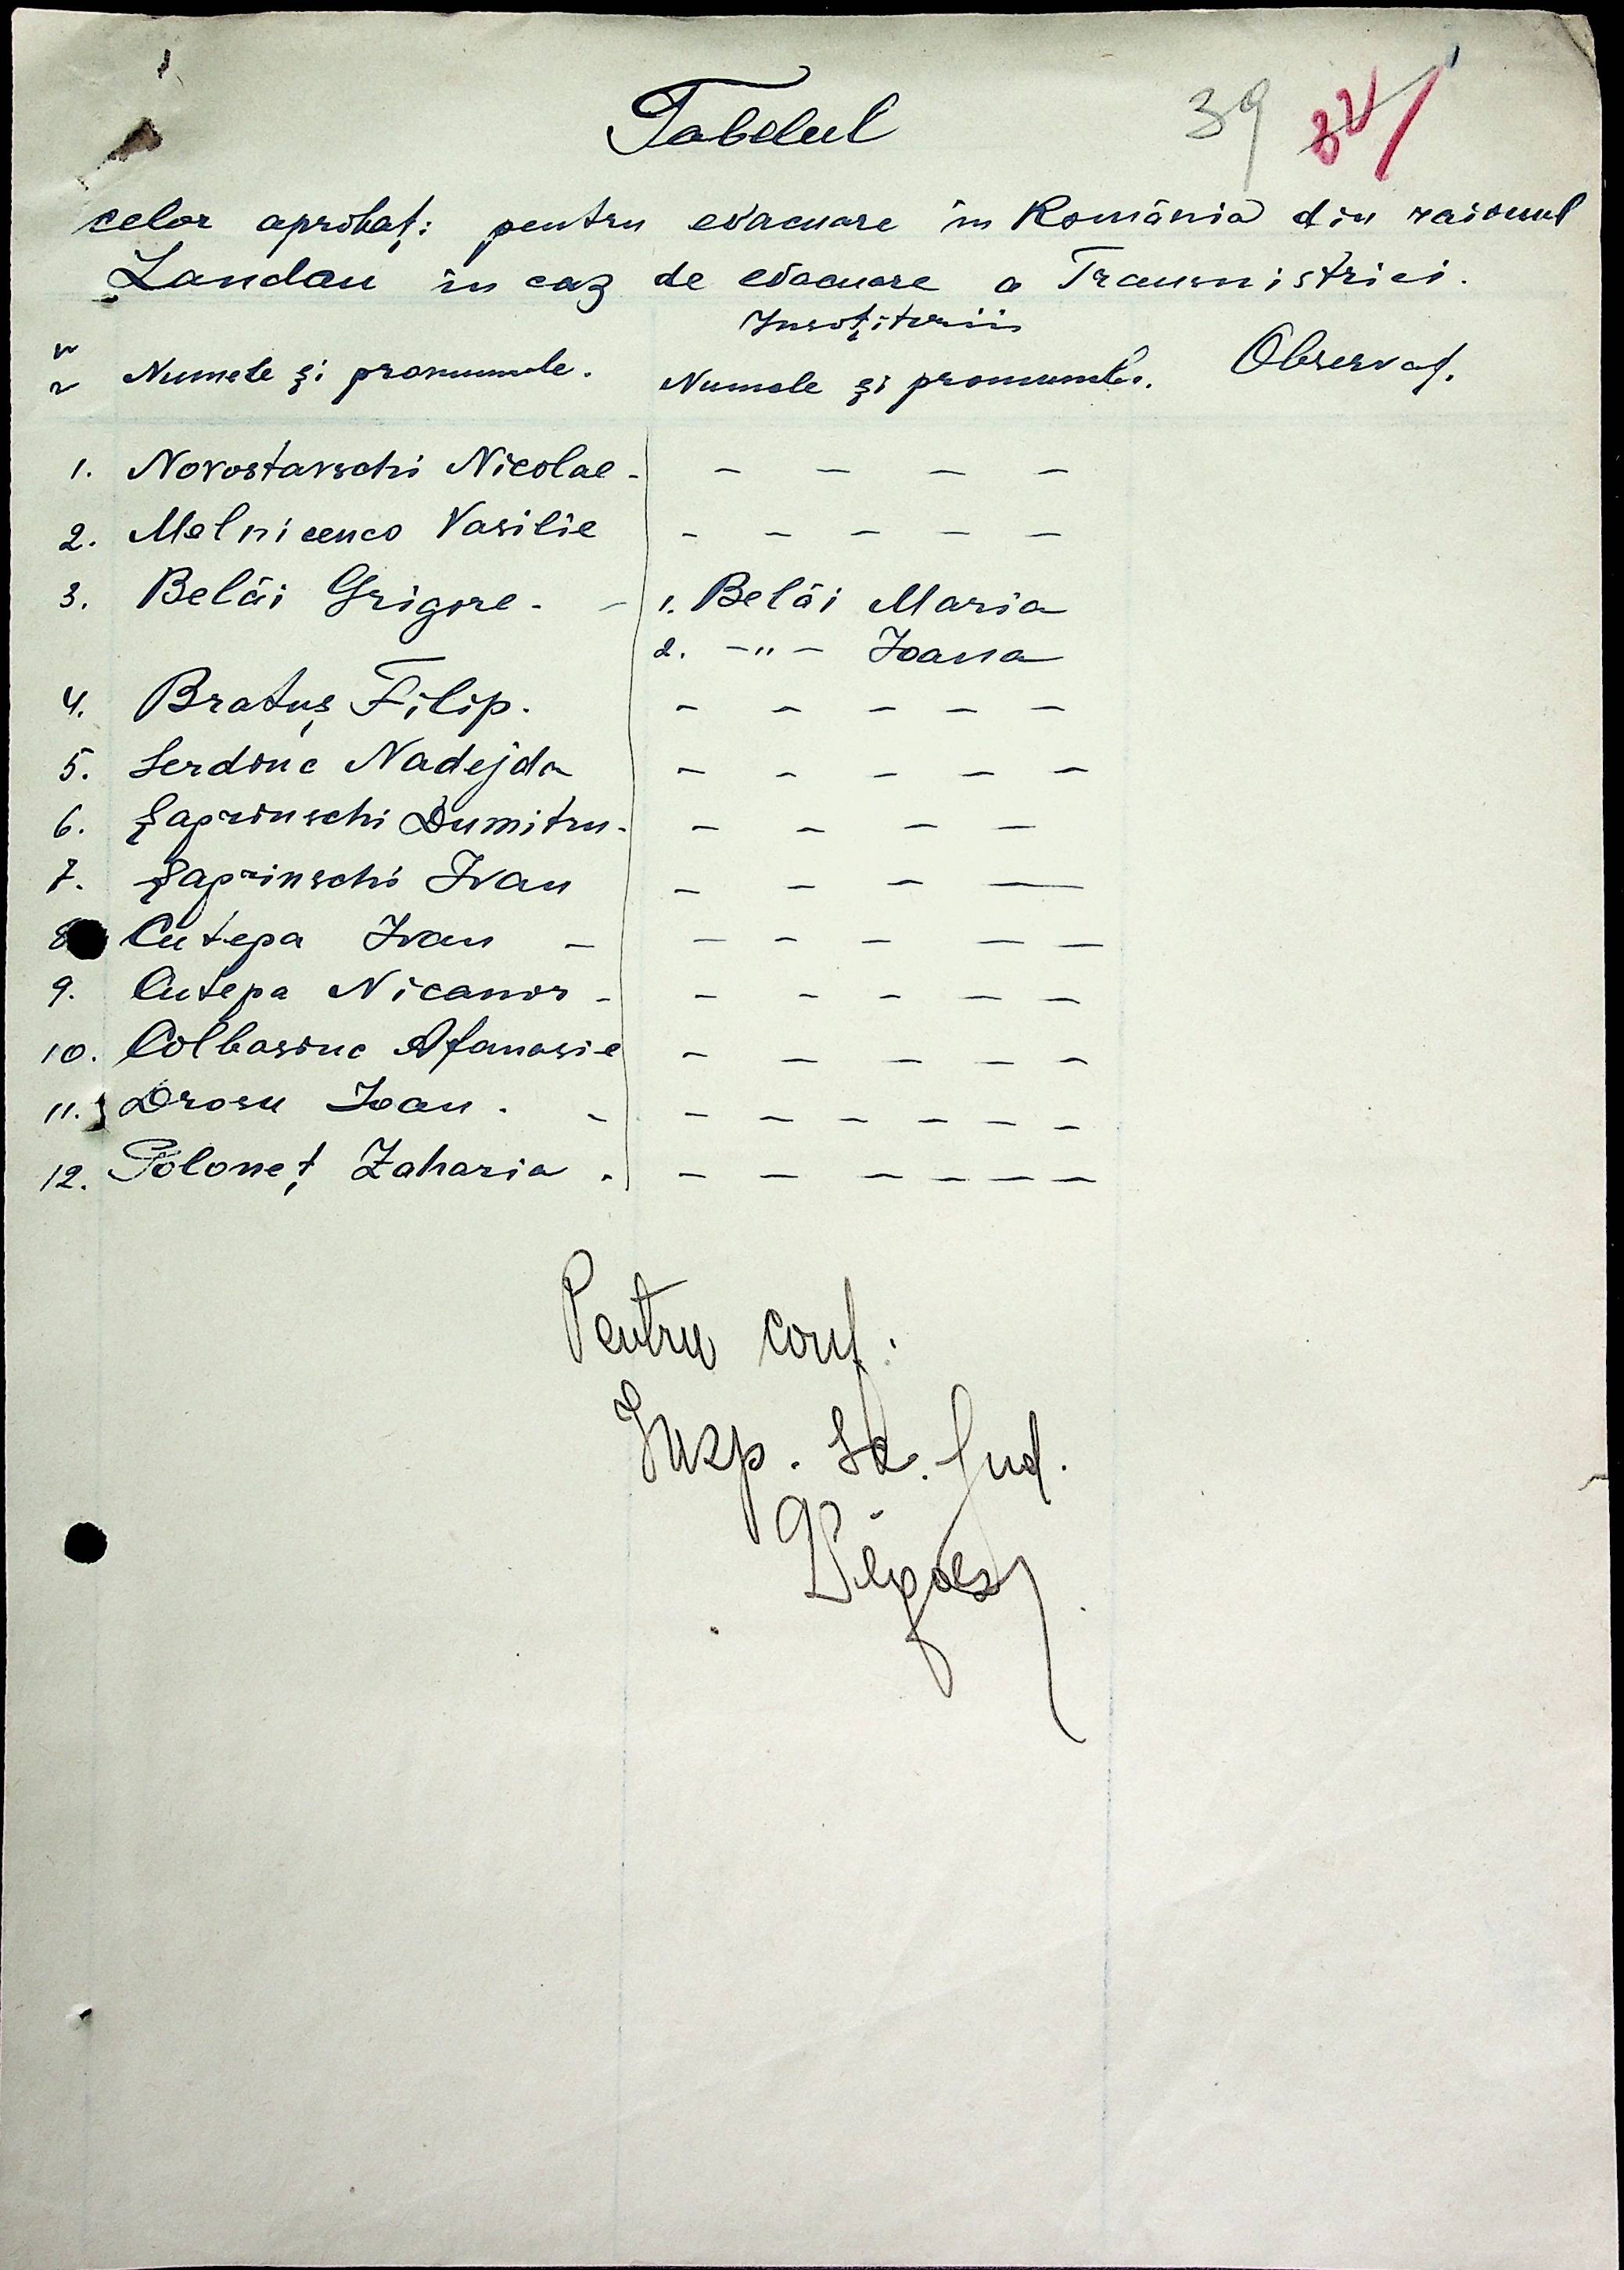 Tabelul
39 32
celor aprobați pentru evacuare în România din raionul
Landau în caz de evacuare a Transnistriei.
Insoțitorii
Numele și pronumele. Numele și pronumele. Observaț.
1. Novostavschi Nicolae - - - - -
2. Melnicenco Vasilie - - - - -
3. Belâi Grigore. - 1. Belâi Maria
2. -"- Ioana
4. Bratuș Filip. - - - - -
5. Serdiuc Nadejda - - - - -
6. Șaprinschi Dumitru. - - - -
7. Șaprinschi Ivan - - - -
8. Cutepa Ivan - - - - - -
9. Cutepa Nicanor - - - - - -
10. Colbasiuc Afanasie - - - - -
11. Drosu Ioan. - - - - - - -
12. Poloneț Zaharia. - - - - - -
Pentru conf.
Insp. Sc. Jud.